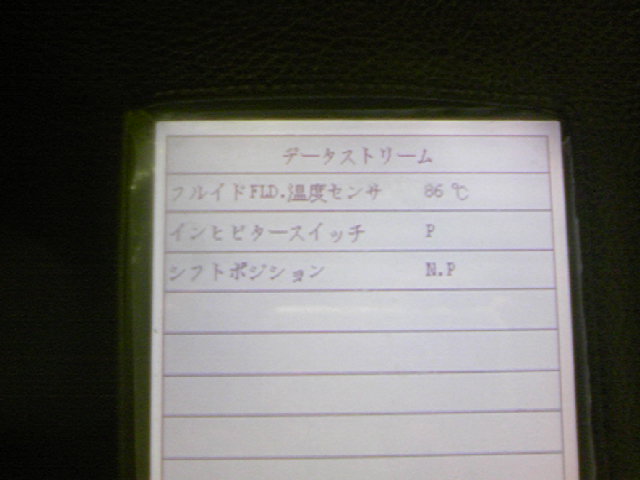 データストリーム
フルイドFLD.温度センサ 86 ℃
インヒビタースイッチ P
シフトポジション N.P